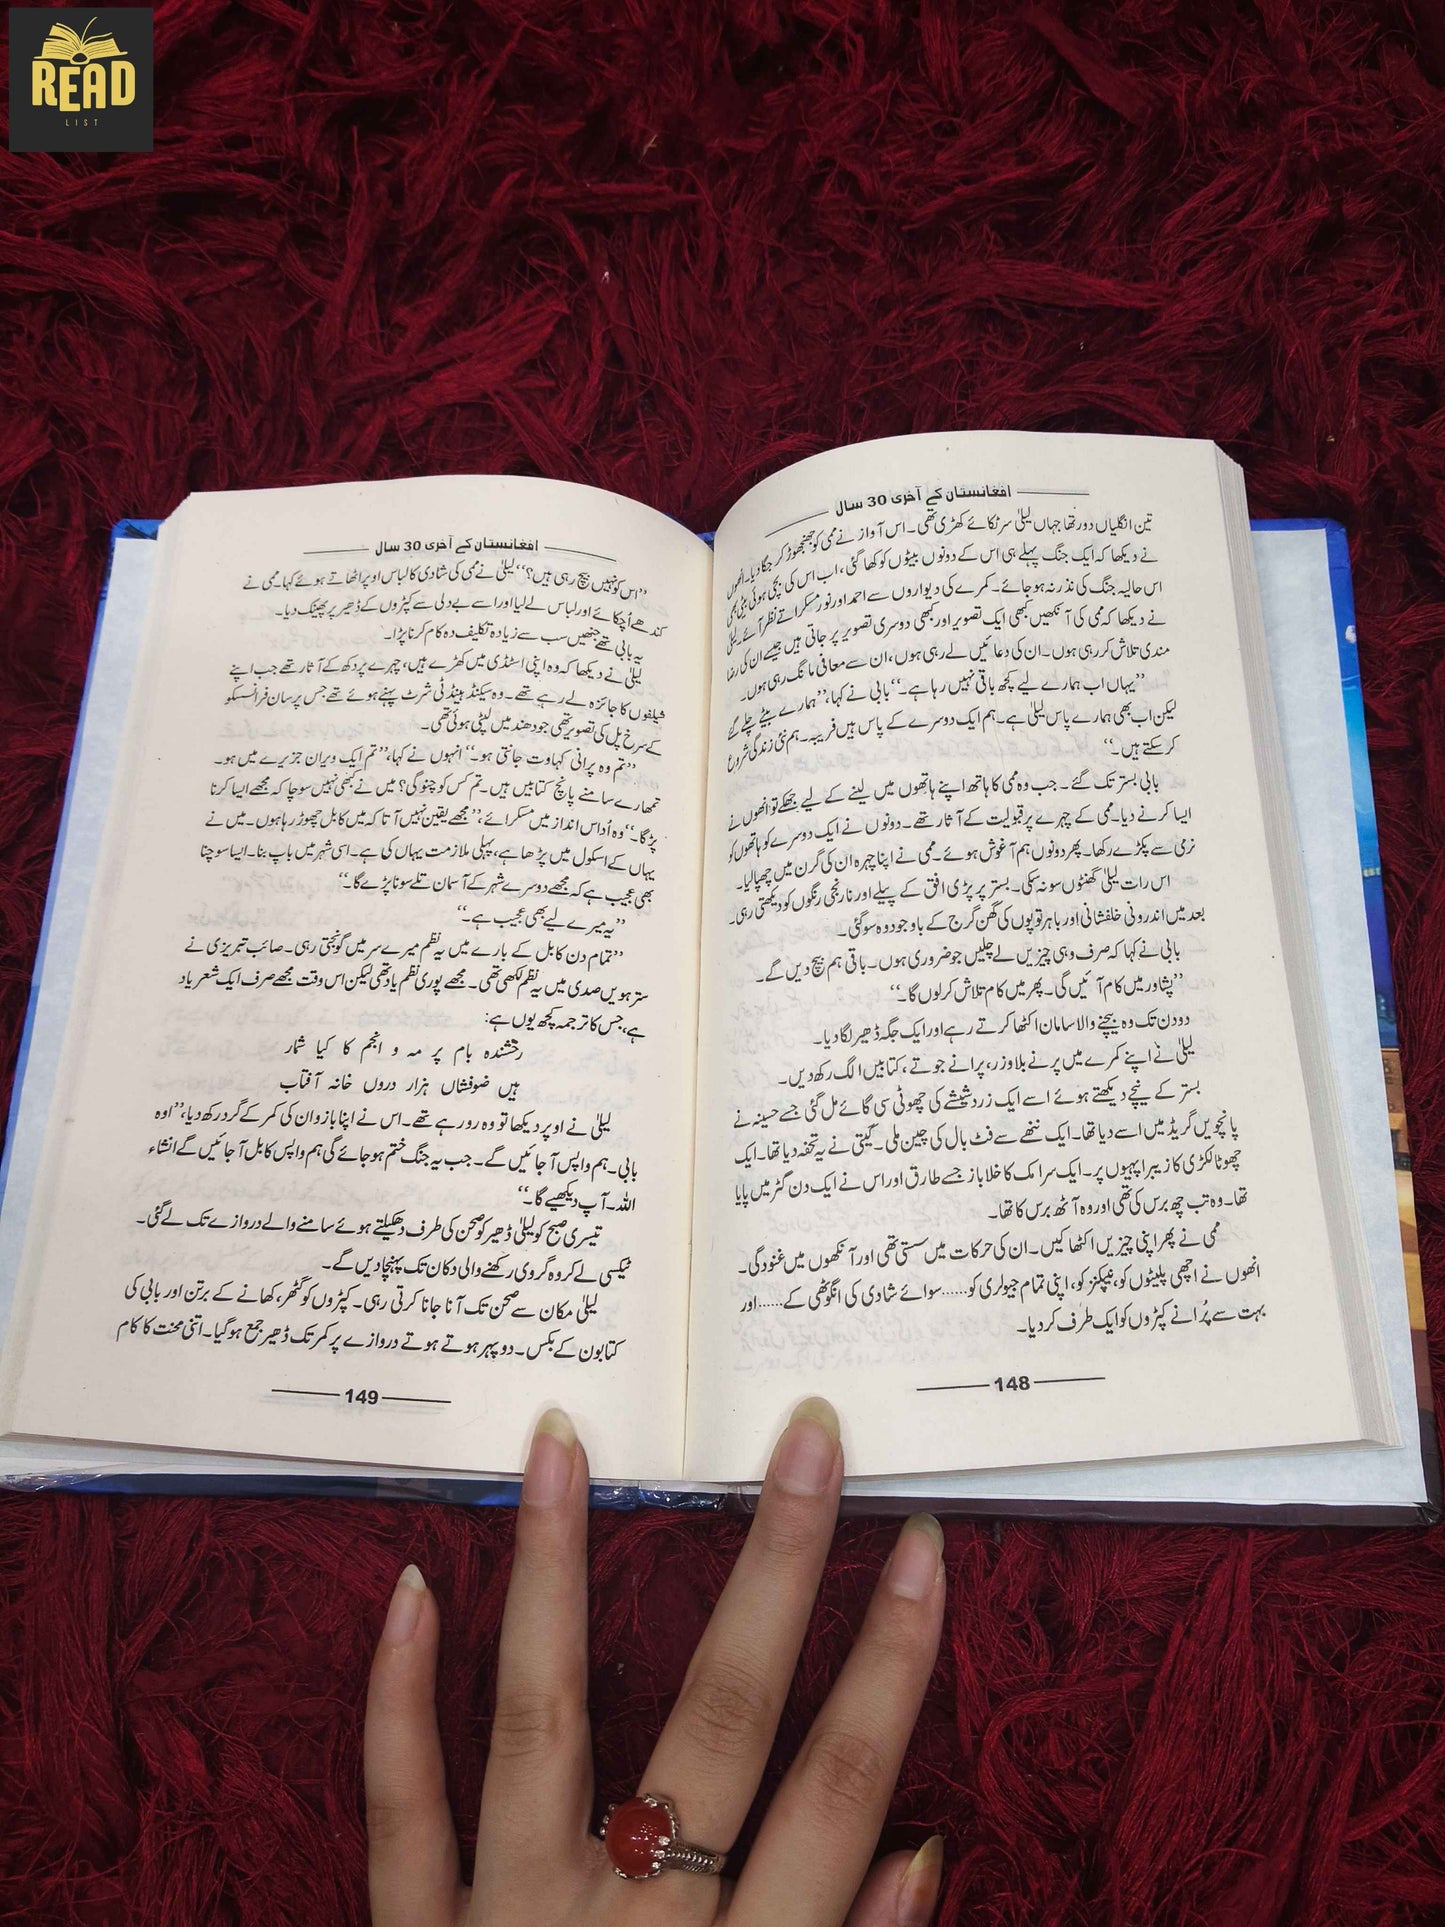 READ
LIST
افغانستان کے آخری 30 سال
تین انگلیاں دور تھا جہاں لیلیٰ سر ٹکائے کھڑی تھی۔ اس آواز نے ممی کو جھنجھوڑ کر جگا دیا۔ انھوں
نے دیکھا کہ ایک جنگ پہلے ہی اس کے دونوں بیٹوں کو کھا گئی، اب اس کی بچی ہوئی بیٹی بھی
اس حالیہ جنگ کی نذر نہ ہو جائے۔ کمرے کی دیواروں سے احمد اور نور مسکراتے نظر آئے۔ لیلیٰ
نے دیکھا کہ ممی کی آنکھیں کبھی ایک تصویر اور کبھی دوسری تصویر پر جاتی ہیں جیسے ان کی رضا
مندی تلاش کر رہی ہوں۔ ان کی دعائیں لے رہی ہوں، ان سے معافی مانگ رہی ہوں۔
”یہاں اب ہمارے لیے کچھ باقی نہیں رہا ہے۔“ بابی نے کہا، ”ہمارے بیٹے چلے گئے
لیکن اب بھی ہمارے پاس لیلیٰ ہے۔ ہم ایک دوسرے کے پاس ہیں فریبہ۔ ہم نئی زندگی شروع
کر سکتے ہیں۔“
بابی بستر تک گئے۔ جب وہ ممی کا ہاتھ اپنے ہاتھوں میں لینے کے لیے جھکے تو انھوں نے
ایسا کرنے دیا۔ ممی کے چہرے پر قبولیت کے آثار تھے۔ دونوں نے ایک دوسرے کو ہاتھوں کو
نرمی سے پکڑے رکھا۔ پھر دونوں ہم آغوش ہوئے۔ ممی نے اپنا چہرہ ان کی گرن میں چھپا لیا۔
اس رات لیلیٰ گھنٹوں سو نہ سکی۔ بستر پر پڑی افق کے پیلے اور نارنجی رنگوں کو دیکھتی رہی۔
بعد میں اندرونی خلفشانی اور باہر توپوں کی گھن گرج کے باوجود وہ سو گئی۔
بابی نے کہا کہ صرف وہی چیزیں لے چلیں جو ضروری ہوں۔ باقی ہم بیچ دیں گے۔
”پشاور میں کام آئیں گی۔ پھر میں کام تلاش کر لوں گا۔“
دو دن تک وہ بیچنے والا سامان اکٹھا کرتے رہے اور ایک جگہ ڈھیر لگا دیا۔
لیلیٰ نے اپنے کمرے میں پرنے بلاوزر، پرانے جوتے، کتابیں الگ رکھ دیں۔
بستر کے نیچے دیکھتے ہوئے اسے ایک زرد شیشے کی چھوٹی سی گائے مل گئی جسے حسینہ نے
پانچویں گریڈ میں اسے دیا تھا۔ ایک ننھے سے فٹ بال کی چین ملی۔ گیتی نے یہ تحفہ دیا تھا۔ ایک
چھوٹا لکڑی کا زیبرا پہیوں پر۔ ایک سرامک کا خلا باز جسے طارق اور اس نے ایک دن گٹر میں پایا
تھا۔ وہ تب چھ برس کی تھی اور وہ آٹھ برس کا تھا۔
ممی نے پھر اپنی چیزیں اکٹھا کیں۔ ان کی حرکات میں سستی تھی اور آنکھوں میں غنودگی۔
انھوں نے اچھی پلیٹوں کو، نیپکنز کو، اپنی تمام جیولری کو......سوائے شادی کی انگوٹھی کے......اور
بہت سے پُرانے کپڑوں کو ایک طرف کر دیا۔
148
افغانستان کے آخری 30 سال
”اس کو نہیں بیچ رہی ہیں؟“ لیلیٰ نے ممی کی شادی کا لباس اوپر اٹھاتے ہوئے کہا۔ ممی نے
کندھے اُچکائے اور لباس لے لیا اور اسے بے دلی سے کپڑوں کے ڈھیر پر پھینک دیا۔
یہ بابی تھے جنھیں سب سے زیادہ تکلیف دہ کام کرنا پڑا۔
لیلیٰ نے دیکھا کہ وہ اپنی اسٹڈی میں کھڑے ہیں، چہرے پر دکھ کے آثار تھے جب اپنے
شیلفوں کا جائزہ لے رہے تھے۔ وہ سیکنڈ ہینڈ ٹی شرٹ پہنے ہوئے تھے جس پر سان فرانسسکو
کے سرخ پل کی تصویر تھی جو دھند میں لپٹی ہوئی تھی۔
”تم وہ پرانی کہاوت جانتی ہو۔“ انہوں نے کہا، ”تم ایک ویران جزیرے میں ہو۔
تمھارے سامنے پانچ کتابیں ہیں۔ تم کس کو چنو گی؟ میں نے کبھی نہیں سوچا کہ مجھے ایسا کرنا
پڑ گا۔“ وہ اُداس انداز میں مسکرائے، ”مجھے یقین نہیں آتا کہ میں کابل چھوڑ رہا ہوں۔ میں نے
یہاں کے اسکول میں پڑھا ہے، پہلی ملازمت یہاں کی ہے۔ اسی شہر میں باپ بنا۔ ایسا سوچنا
بھی عجیب ہے کہ مجھے دوسرے شہر کے آسمان تلے سونا پڑے گا۔“
”یہ میرے لیے بھی عجیب ہے۔“
”تمام دن کابل کے بارے میں یہ نظم میرے سر میں گونجتی رہی۔ صائب تبریزی نے
سترھویں صدی میں یہ نظم لکھی تھی۔ مجھے پوری نظم یاد تھی لیکن اس وقت مجھے صرف ایک شعر یاد
ہے، جس کا ترجمہ کچھ یوں ہے:
رخشندہ بام پر مہ و انجم کا کیا شمار
ہیں ضوفشاں ہزار دروں خانہ آفتاب
لیلیٰ نے اوپر دیکھا تو وہ رو رہے تھے۔ اس نے اپنا بازو ان کی کمر کے گرد رکھ دیا، ”اوہ
بابی۔ ہم واپس آ جائیں گے۔ جب یہ جنگ ختم ہو جائے گی ہم واپس کابل آ جائیں گے انشاء
اللہ۔ آپ دیکھیے گا۔“
تیسری صبح کو لیلیٰ ڈھیر کو صحن کی طرف دھکیلتے ہوئے سامنے والے دروازے تک لے گئی۔
ٹیکسی لے کر وہ گروی رکھنے والی دکان تک پہنچا دیں گے۔
لیلیٰ مکان سے صحن تک آنا جانا کرتی رہی۔ کپڑوں کو گٹھر، کھانے کے برتن اور بابی کی
کتابون کے بکس۔ دوپہر ہوتے ہوتے دروازے پر کمر تک ڈھیر جمع ہو گیا۔ اتنی محنت کا کام
149